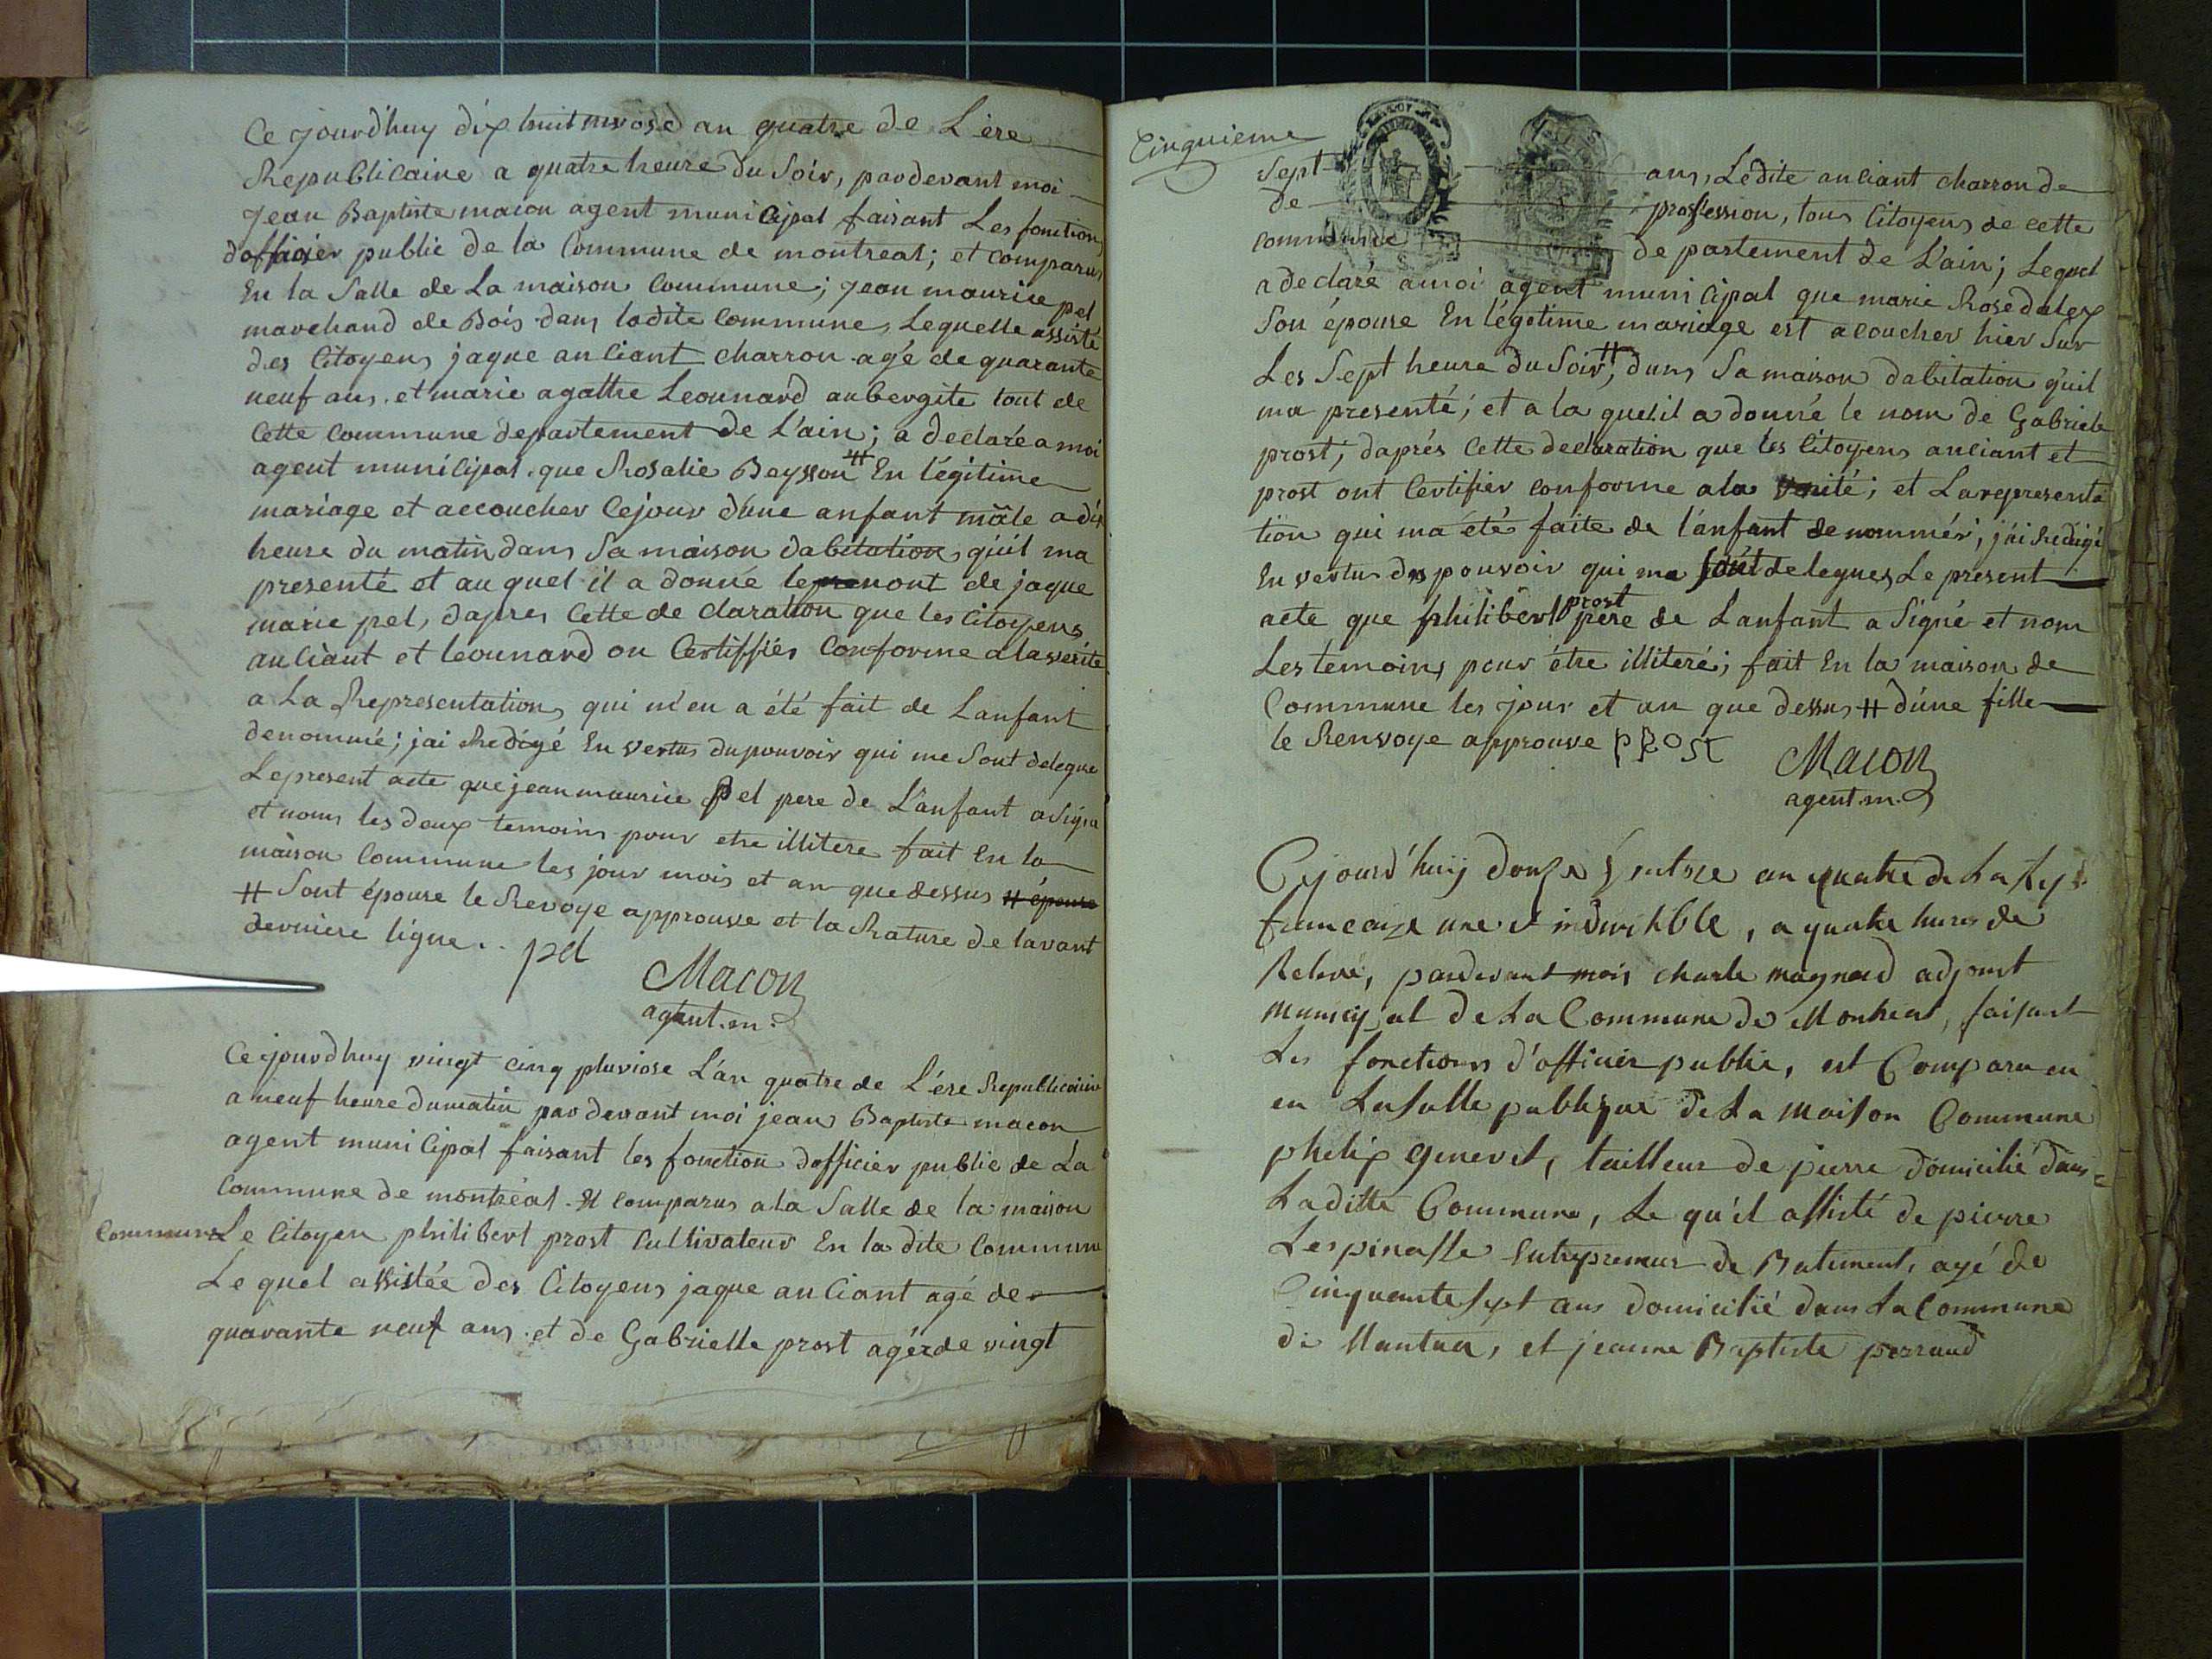 Ce jourd'huy dix huit nivose an quatre de L'ère
Republicaine a quatre heure du Soir, pardevant moi
jean Baptiste macon agent municipal faisant Les fonction
d'officier public de la Commune de montreal; et comparus
En la Salle de La maison Commune; jean maurice pel
marchand de Bois dans ladite Commune, Lequelle assisté
des Citoyens jaque anciant charron agé de quarante
neuf ans, et marie agathe Leounard aubergite tout de
Cette Commune departement de L'ain; a declaré a moi
agent municipal que Rosalie Beysson # En légitime
mariage et accoucher Cejour d'une anfant mâle a dix
heure du matin dans Sa maison dabitation, qu'il ma
presenté et au quel il a donné le prenont de jaque
marie pel, dapres Cette de claration que les Citoyens
anciant et leounard on Certiffiés Conforme a la verité
a La Representation, qui m'en a été fait de Lanfant
denommé; jai Redigé En vertus du pouvoir qui me Sont delegue
Le present acte que jean maurice pel pere de L'anfant a Signa
et noms les deux temoins pour etre illitere fait En la
maison Commune les jour mois et an que dessus # épouse
# Sont épouse le Revoye approuve et la Rature de lavant
derniere ligne.. pel
Macon
agent.m.
Ce jourdhuy vingt cinq pluviose L'an quatre de L'ère Republicaine
a neuf heure dumatin par devant moi jean Baptiste macon
agent municipal faisant les fonction d'officier public de La
Commune de montréal. Et comparus a la Salle de la maison
Commune Le Citoyen philibert prost Cultivateur En la dite Commune
Le quel assistée des Citoyens jaque anciant agé de
quarante neuf ans. et de Gabrielle prost agér de vingt
Cinquieme
Sept ans, Ledite anciant charron de
de proffession, tous Citoyens de cette
commune de partement de L'ain; Lequel
a declaré a moi agent municipal que marie Rose dalex
Son épouse En légitime mariage est acoucher hier Sur
Les Sept heure du Soir #, dans Sa maison dabitation qu'il
ma presenté; et a la quel il a donné le nom de Gabriele
prost; daprés Cette declaration que les Citoyens anciant et
prost ont Certifier conforme a la verité; et La representa
tion qui ma été faite de l'anfant denommér; j'ai Redigé
En vertus des pouvoir qui me Sont delegues Le present
acte que philibert prost pere de Lanfant a Signé et nom
Les temoins pour être illiteré; fait En la maison de
Commune les jour et an que dessus # d'une fille
le Renvoye approuve PROST
Macon
agent.m.
Cejourd'huij douze Ventose an quatre de La Rep.
francaize une et indivisible, a quatre hures de
Relevé, pardevant moi charle magnard adjoint
municipal de La Commune de Montreal, faisant
Les fonctions d'officier public, est Comparu en
en La Salle publique de La maison Commune
phelix genevet, tailleur de pierre domicilié dans
La ditte Commune, Le qu'el assisté de pierre
Lespinasse Entrepreneur de Batiment, agé de
Cinquante sept ans domicilié dans La Commune
de Nantua, et jeanne Baptiste perraud